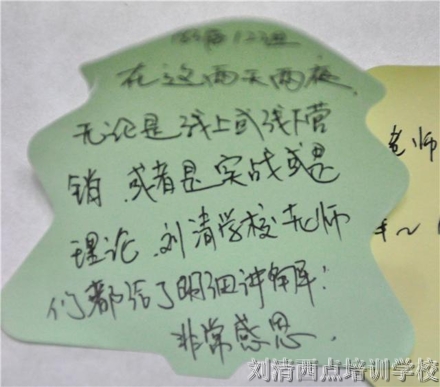 在这两天两夜
无论是线上或线下营
销、或者是实战或是
理论、刘清学校老师
们都给了明细讲解！
非常感恩.
老师
刘清西点培训学校